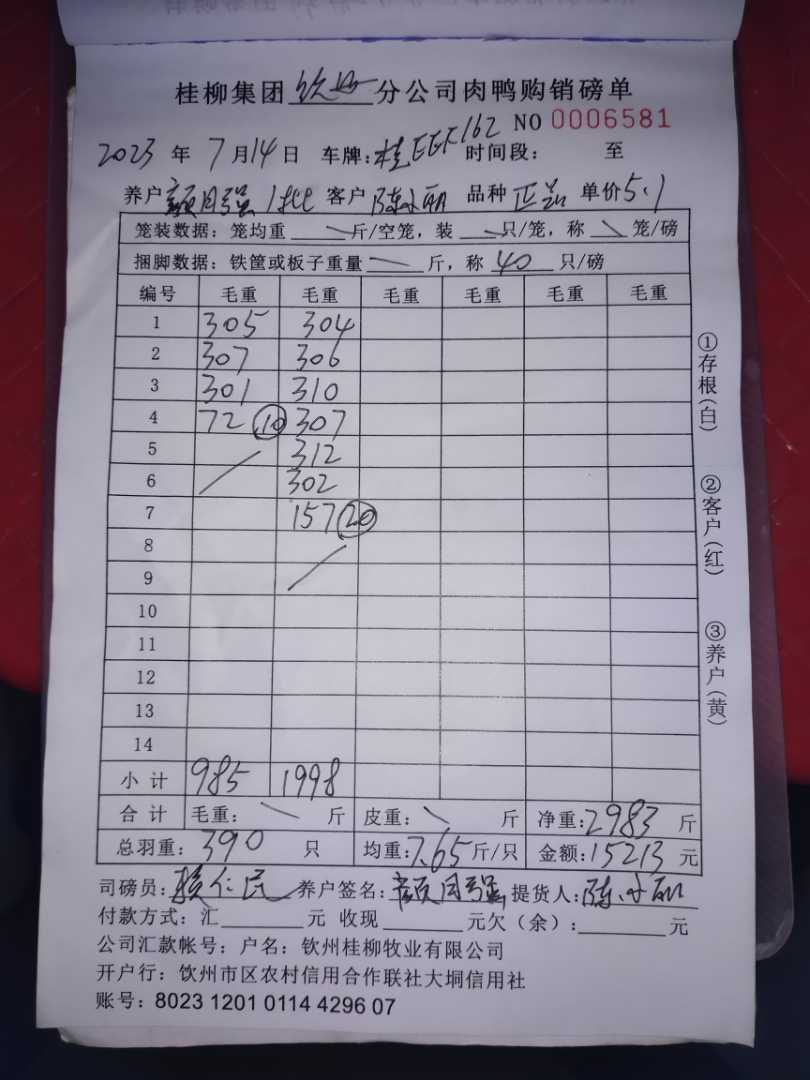 桂柳集团钦州分公司肉鸭购销磅单
NO 0006581
2023 年 7 月 14 日 车牌: 桂 162 时间段: 至
养户 颜月强 1批 客户 陈小丽 品种 正品 单价 5.1
笼装数据: 笼均重 斤/空笼, 装 只/笼, 称 笼/磅
捆脚数据: 铁筐或板子重量 斤, 称 40 只/磅
编号 毛重 毛重 毛重 毛重 毛重 毛重
1 305 304
2 307 306
3 301 310
4 72 10 307
5 312
6 302
7 157 20
8
9
10
11
12
13
14
小计 985 1998
合计 毛重: 斤 皮重: 斤 净重: 2983 斤
总羽重: 390 只 均重: 7.65 斤/只 金额: 15213 元
司磅员: 仁民 养户签名: 颜月强 提货人: 陈小丽
付款方式: 汇 元 收现 元 欠(余): 元
公司汇款帐号: 户名: 钦州桂柳牧业有限公司
开户行: 饮州市区农村信用合作联社大垌信用社
账号: 8023 1201 0114 4296 07
①存根(白)
②客户(红)
③养户(黄)